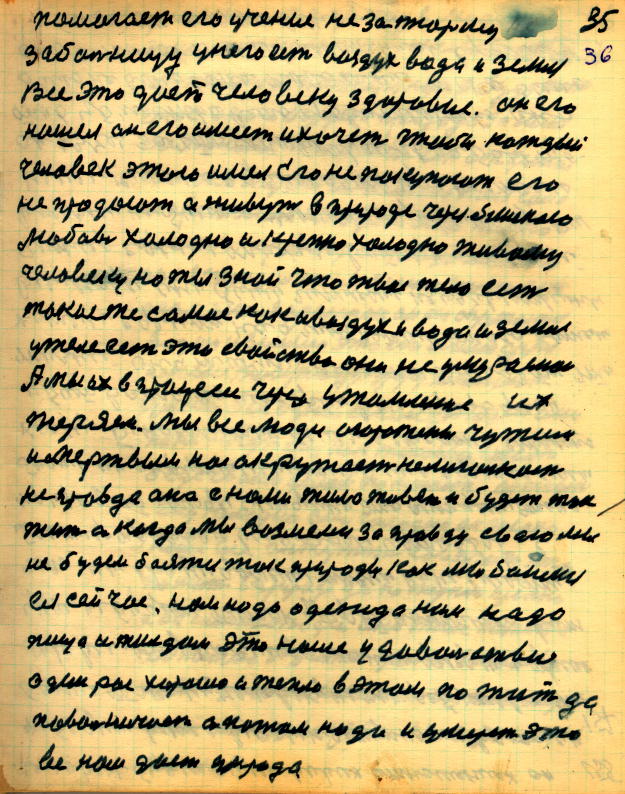 35
помогает его учение не за тюрму 36
заботницу у него ест воздух вода и земля
Все это дает человеку здоровие. он его
нашел он его имеет и хочет чтобы каждый
человек этого имел Его не покупают его
не продают а живут в природе через близкаю
любов холодно и крепко холодно живому
человеку но ты знай что твое тело ест
такое же самое как и воздух и вода и земля
у тела ест эти свойства они не умираемы
А мы их в процеси через утомление их
теряем. мы все люди окружены чужим
и мертвым нас окружает
неправда она с нами жила живет и будет так
жит а когда мы возмем за правду свою мы
не будем боятися так природы как мы боимся
ея сейчас. нам надо одежда нам надо
пища и жилдом это наше удовольствие
один раз хорошо и тепло в этом пожит да
а потом надо и умерет это
все нам дает природа